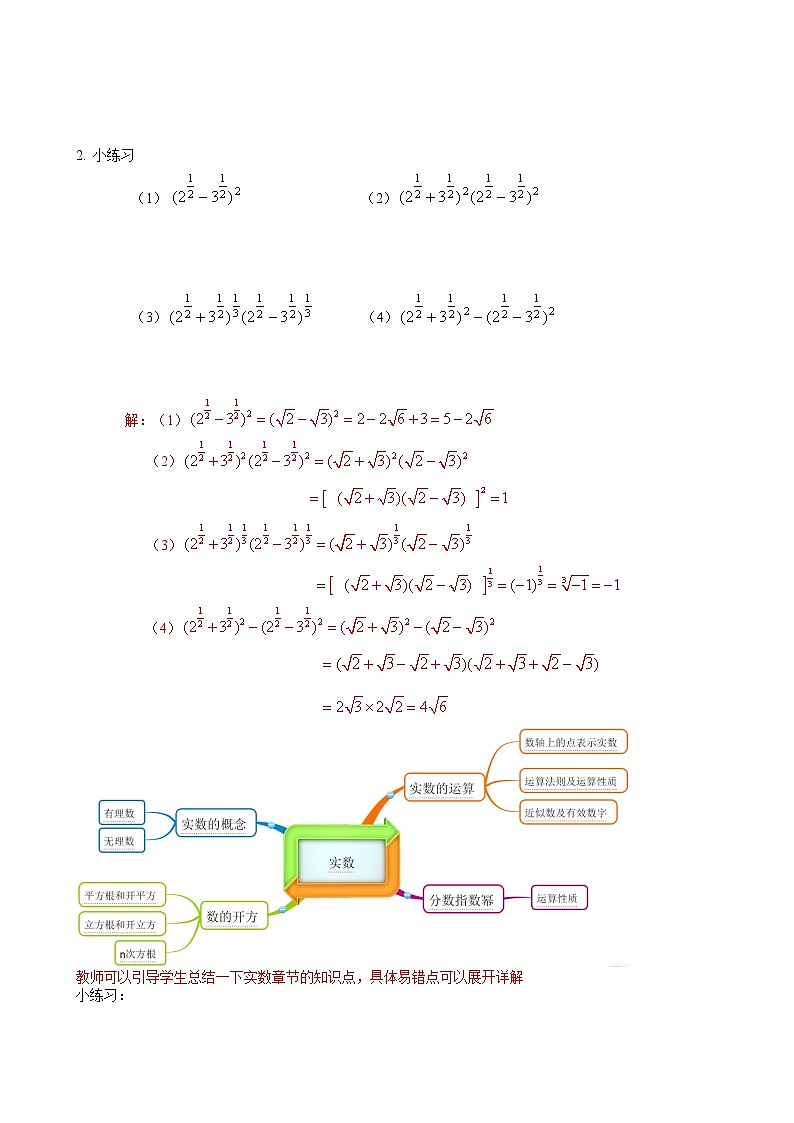 2. 小练习
（1）$(2^{\frac{1}{2}}-3^{\frac{1}{2}})^2$ （2）$(2^{\frac{1}{2}}+3^{\frac{1}{2}})^2(2^{\frac{1}{2}}-3^{\frac{1}{2}})^2$
（3）$(2^{\frac{1}{2}}+3^{\frac{1}{2}})^{\frac{1}{3}}(2^{\frac{1}{2}}-3^{\frac{1}{2}})^{\frac{1}{3}}$ （4）$(2^{\frac{1}{2}}+3^{\frac{1}{2}})^2-(2^{\frac{1}{2}}-3^{\frac{1}{2}})^2$
解：（1）$(2^{\frac{1}{2}}-3^{\frac{1}{2}})^2=(\sqrt{2}-\sqrt{3})^2=2-2\sqrt{6}+3=5-2\sqrt{6}$
（2）$(2^{\frac{1}{2}}+3^{\frac{1}{2}})^2(2^{\frac{1}{2}}-3^{\frac{1}{2}})^2=(\sqrt{2}+\sqrt{3})^2(\sqrt{2}-\sqrt{3})^2$
$=[(\sqrt{2}+\sqrt{3})(\sqrt{2}-\sqrt{3})]^2=1$
（3）$(2^{\frac{1}{2}}+3^{\frac{1}{2}})^{\frac{1}{3}}(2^{\frac{1}{2}}-3^{\frac{1}{2}})^{\frac{1}{3}}=(\sqrt{2}+\sqrt{3})^{\frac{1}{3}}(\sqrt{2}-\sqrt{3})^{\frac{1}{3}}$
$=[(\sqrt{2}+\sqrt{3})(\sqrt{2}-\sqrt{3})]^{\frac{1}{3}}=(-1)^{\frac{1}{3}}=\sqrt[3]{-1}=-1$
（4）$(2^{\frac{1}{2}}+3^{\frac{1}{2}})^2-(2^{\frac{1}{2}}-3^{\frac{1}{2}})^2=(\sqrt{2}+\sqrt{3})^2-(\sqrt{2}-\sqrt{3})^2$
$=(\sqrt{2}+\sqrt{3}-\sqrt{2}+\sqrt{3})(\sqrt{2}+\sqrt{3}+\sqrt{2}-\sqrt{3})$
$=2\sqrt{3}\times2\sqrt{2}=4\sqrt{6}$
实数
实数的概念
有理数
无理数
数的开方
平方根和开平方
立方根和开立方
n次方根
实数的运算
数轴上的点表示实数
运算法则及运算性质
近似数及有效数字
分数指数幂
运算性质
教师可以引导学生总结一下实数章节的知识点，具体易错点可以展开详解
小练习：